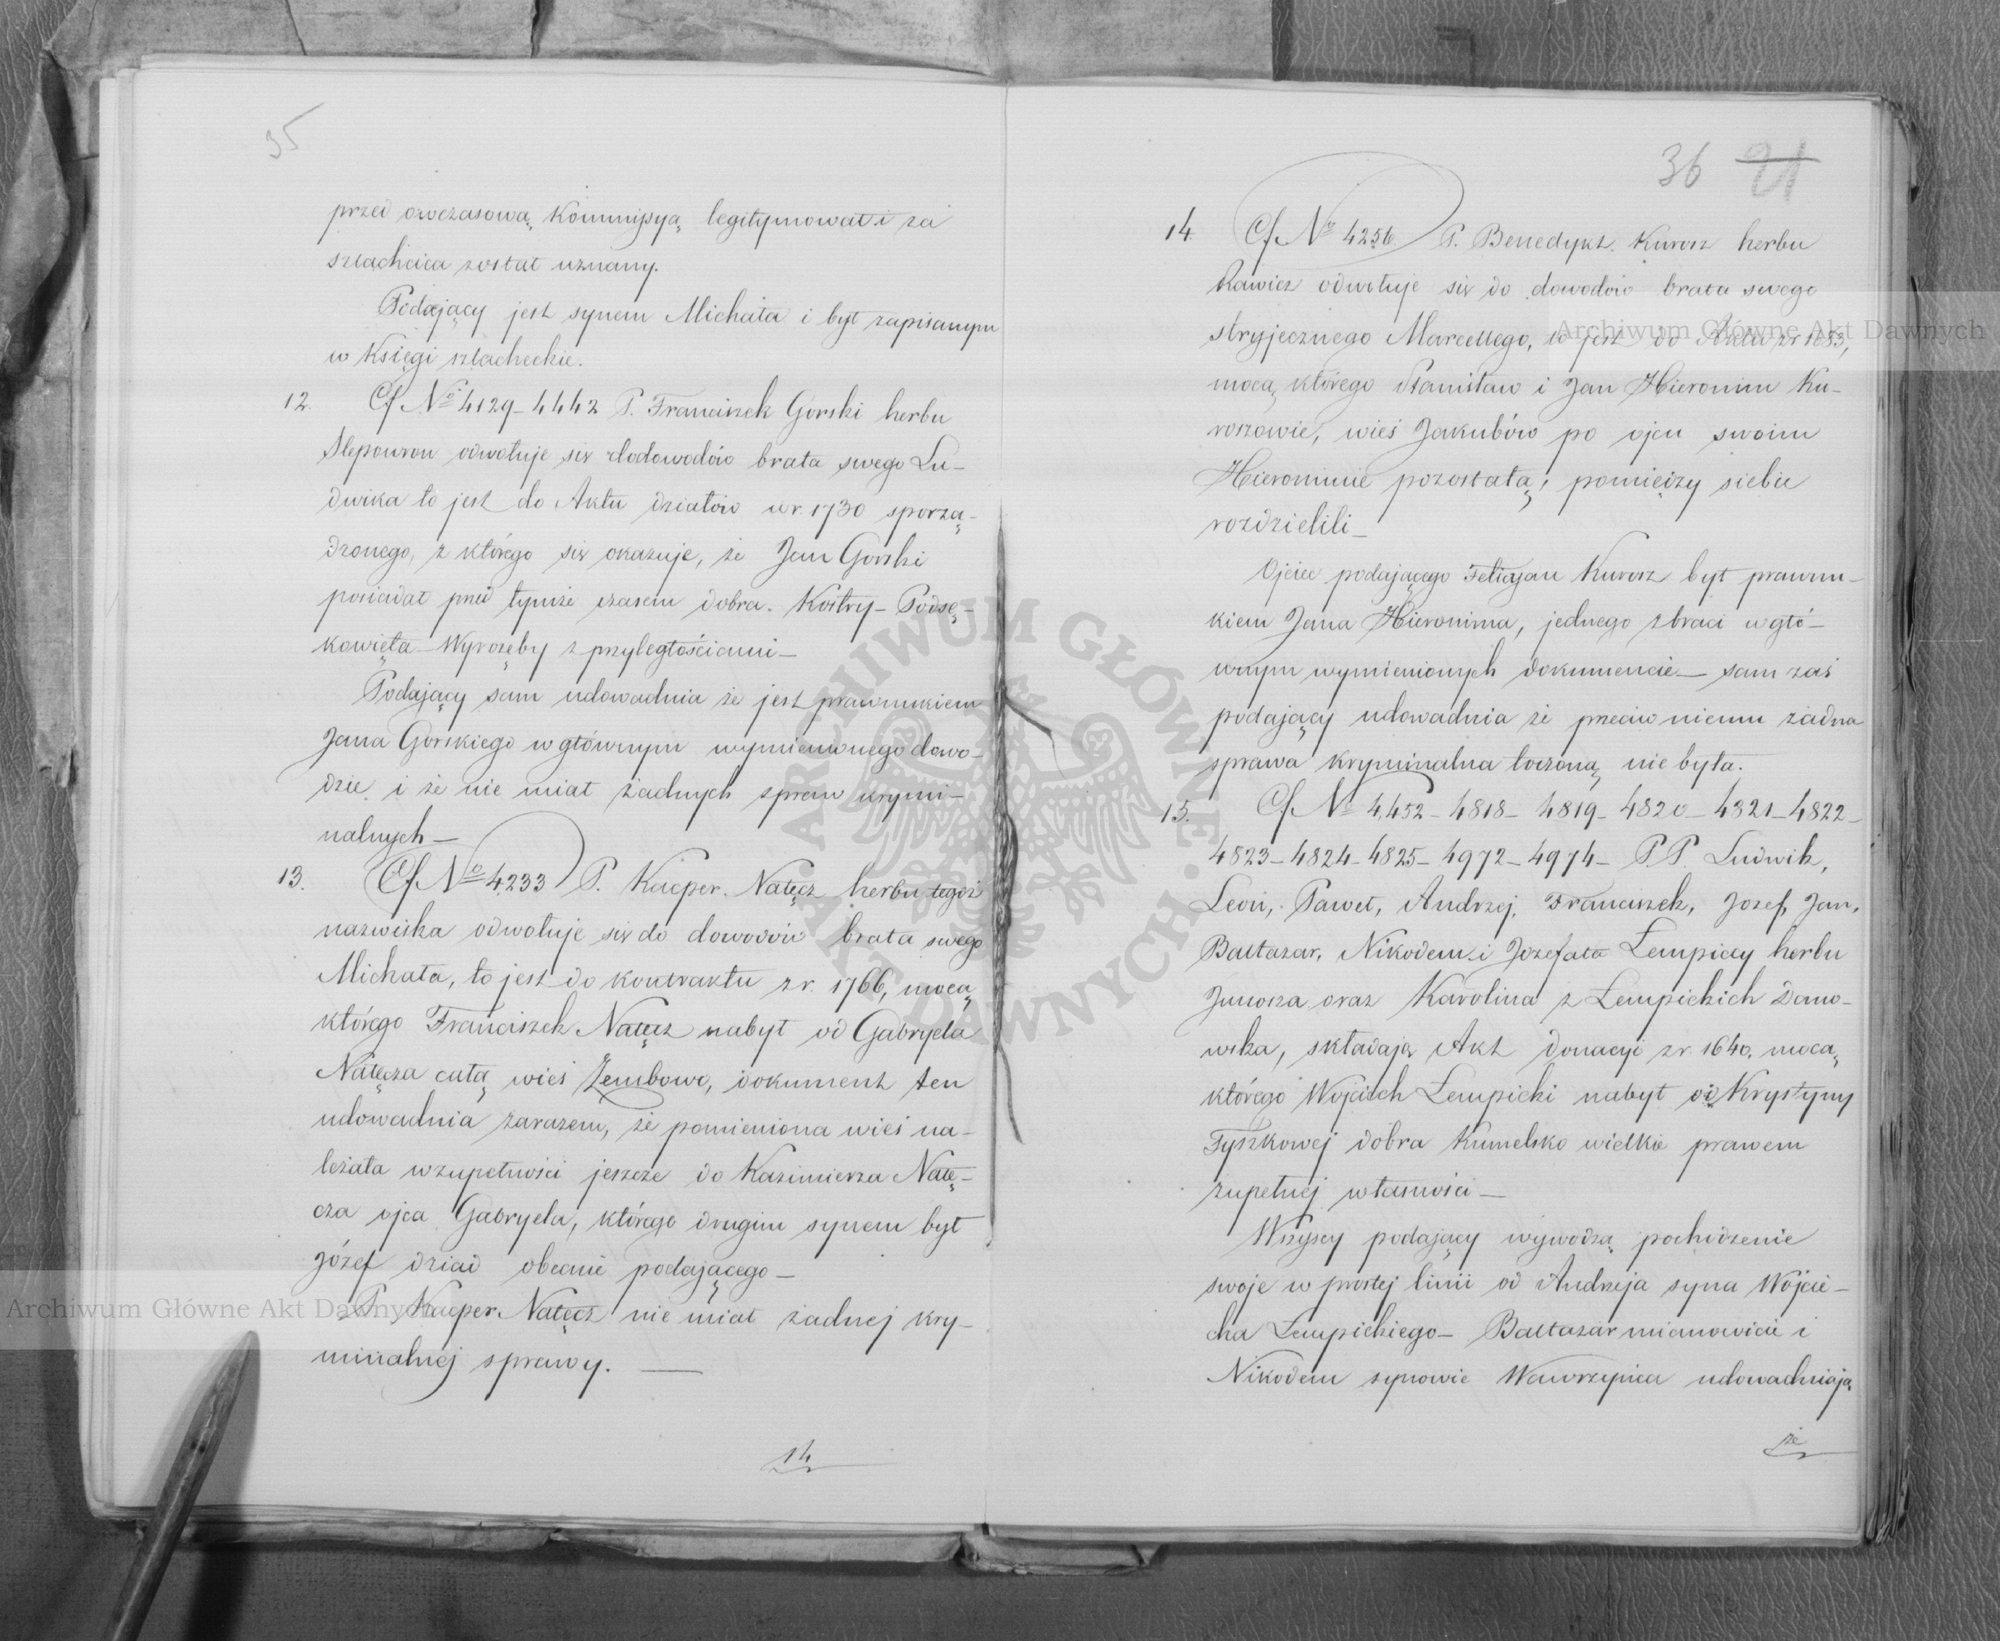 35
przed ówczasową Kommissyą legitymował i za
szlachcica został uznany.
Podający jest synem Michała i był zapisanym
w Księgi szlacheckie.
12. Cf No 4129 - 4442 P. Franciszek Gorski herbu
Slepowron odwołuje się do dowodów brata swego Lu-
dwika to jest do Aktu działów w r. 1730 sporzą-
dzonego, z którego się okazuje, że Jan Gorski
posiadał pzed tymże czasem dobra. Kostry - Podsę-
kowięta - Wyrozęby z przyległościami -
Podający sam udowadnia że jest prawnukiem
Jana Gorskiego w głównym wymienionego dowo-
dzie i że nie miał żadnych spraw krymi-
nalnych -
13. Cf No 4233 P. Kacper Nałęcz herbu tegoż
nazwiska odwołuje się do dowodów brata swego
Michała, to jest do kontraktu z r. 1766, mocą
którego Franciszek Nałęcz nabył od Gabryela
Nałęcza całą wieś Zembowo, dokument ten
udowadnia zarazem, że pomieniona wieś na-
leżała w zupełności jeszcze do Kazimierza Nałę-
cza ojca Gabryela, którego drugim synem był
Józef dziad obecnie podającego -
P. Kacper Nałęcz nie miał żadnej kry-
minalnej sprawy. -
14
36 21
14. Cf No 4256 P. Benedykt Kurosz herbu
Rawicz odwołuje się do dowodów brata swego
stryjecznego Marcellego, to jest do Aktu z r 1683,
mocą którego Stanisław i Jan Hieronim Ku-
roszowie, wieś Jakubów po ojcu swoim
Hieronimie pozostałą, pomiędzy siebie
rozdzielili -
Ojciec podającego Felicjan Kurosz był prawnu-
kiem Jana Hieronima, jednego z braci w głó-
wnym wymienionych dokumencie - sam zaś
podający udowadnia że przeciw niemu żadna
sprawa kryminalna toczoną nie była.
15. Cf No 4452 - 4818 - 4819 - 4820 - 4821 - 4822 -
4823 - 4824 - 4825 - 4972 - 4974 - P.P. Ludwik,
Leon, Paweł, Andrzej, Franciszek, Jozef, Jan,
Baltazar, Nikodem i Jozefata Łempiccy herbu
Junosza oraz Karolina z Łempickich Damo-
wska, składają Akt donacyi z r. 1640, mocą
którego Wojciech Łempicki nabył od Krystyny
Tyszkowej dobra Kumelsko wielkie prawem
zupełnej własności -
Wszyscy podający wywodzą pochodzenie
swoje w prostej linii od Andrzeja syna Wojcie-
cha Łempickiego - Baltazar mianowicie i
Nikodem synowie Wawrzyńca udowadniają
że
Archiwum Główne Akt Dawnych
Archiwum Główne Akt Dawnych
ARCHIWUM GŁÓWNE AKT DAWNYCH